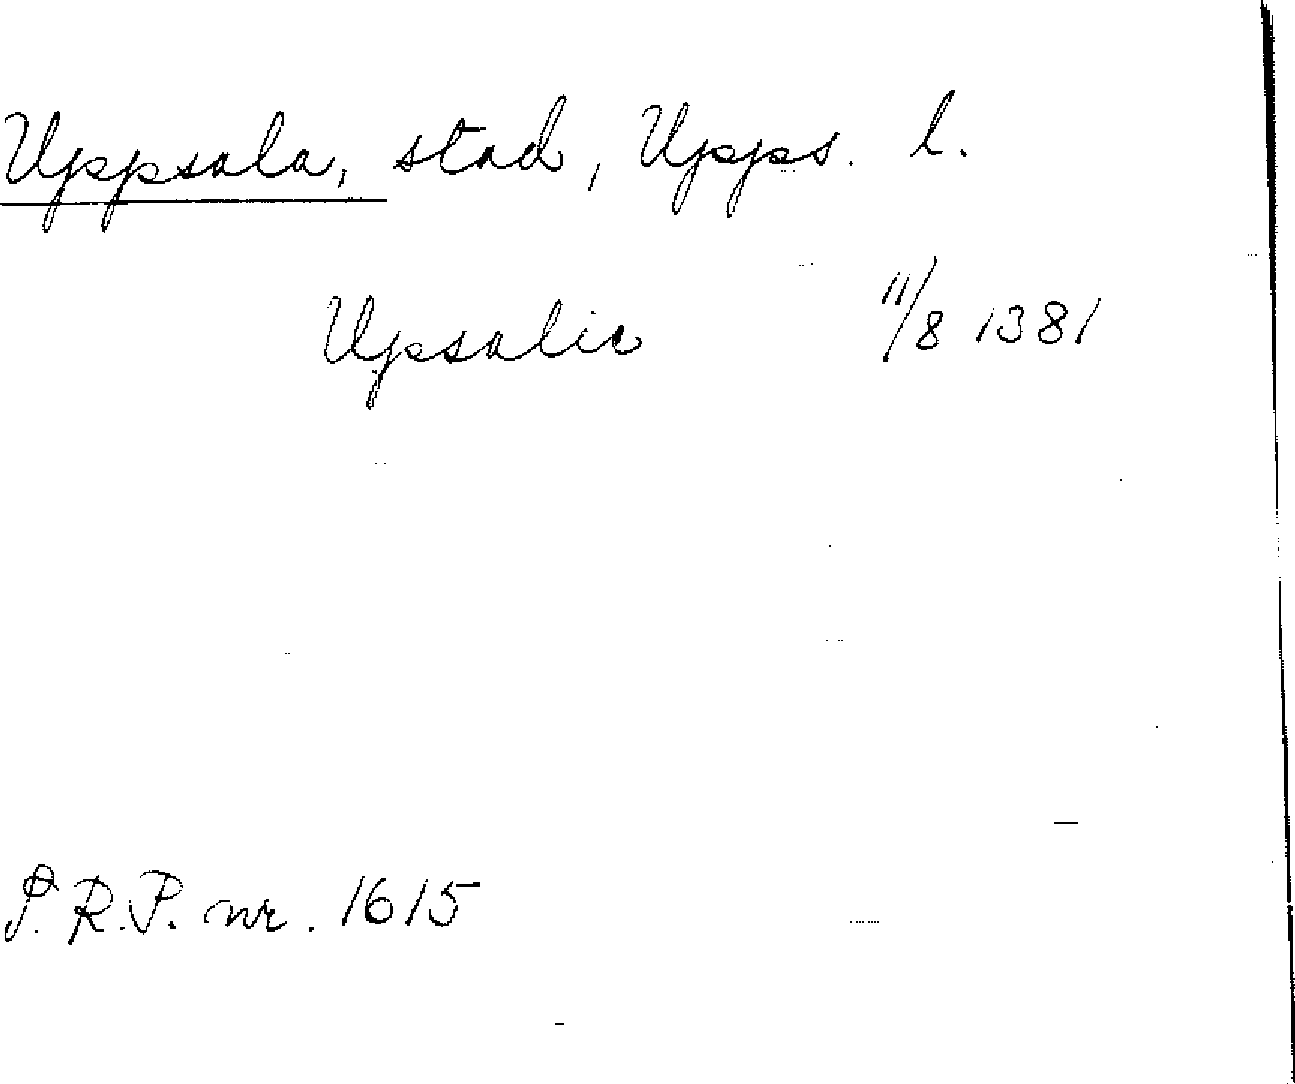 Uppsala, stad, Upps. l.
Upsalie 11/8 1381
S.R.P. nr. 1615